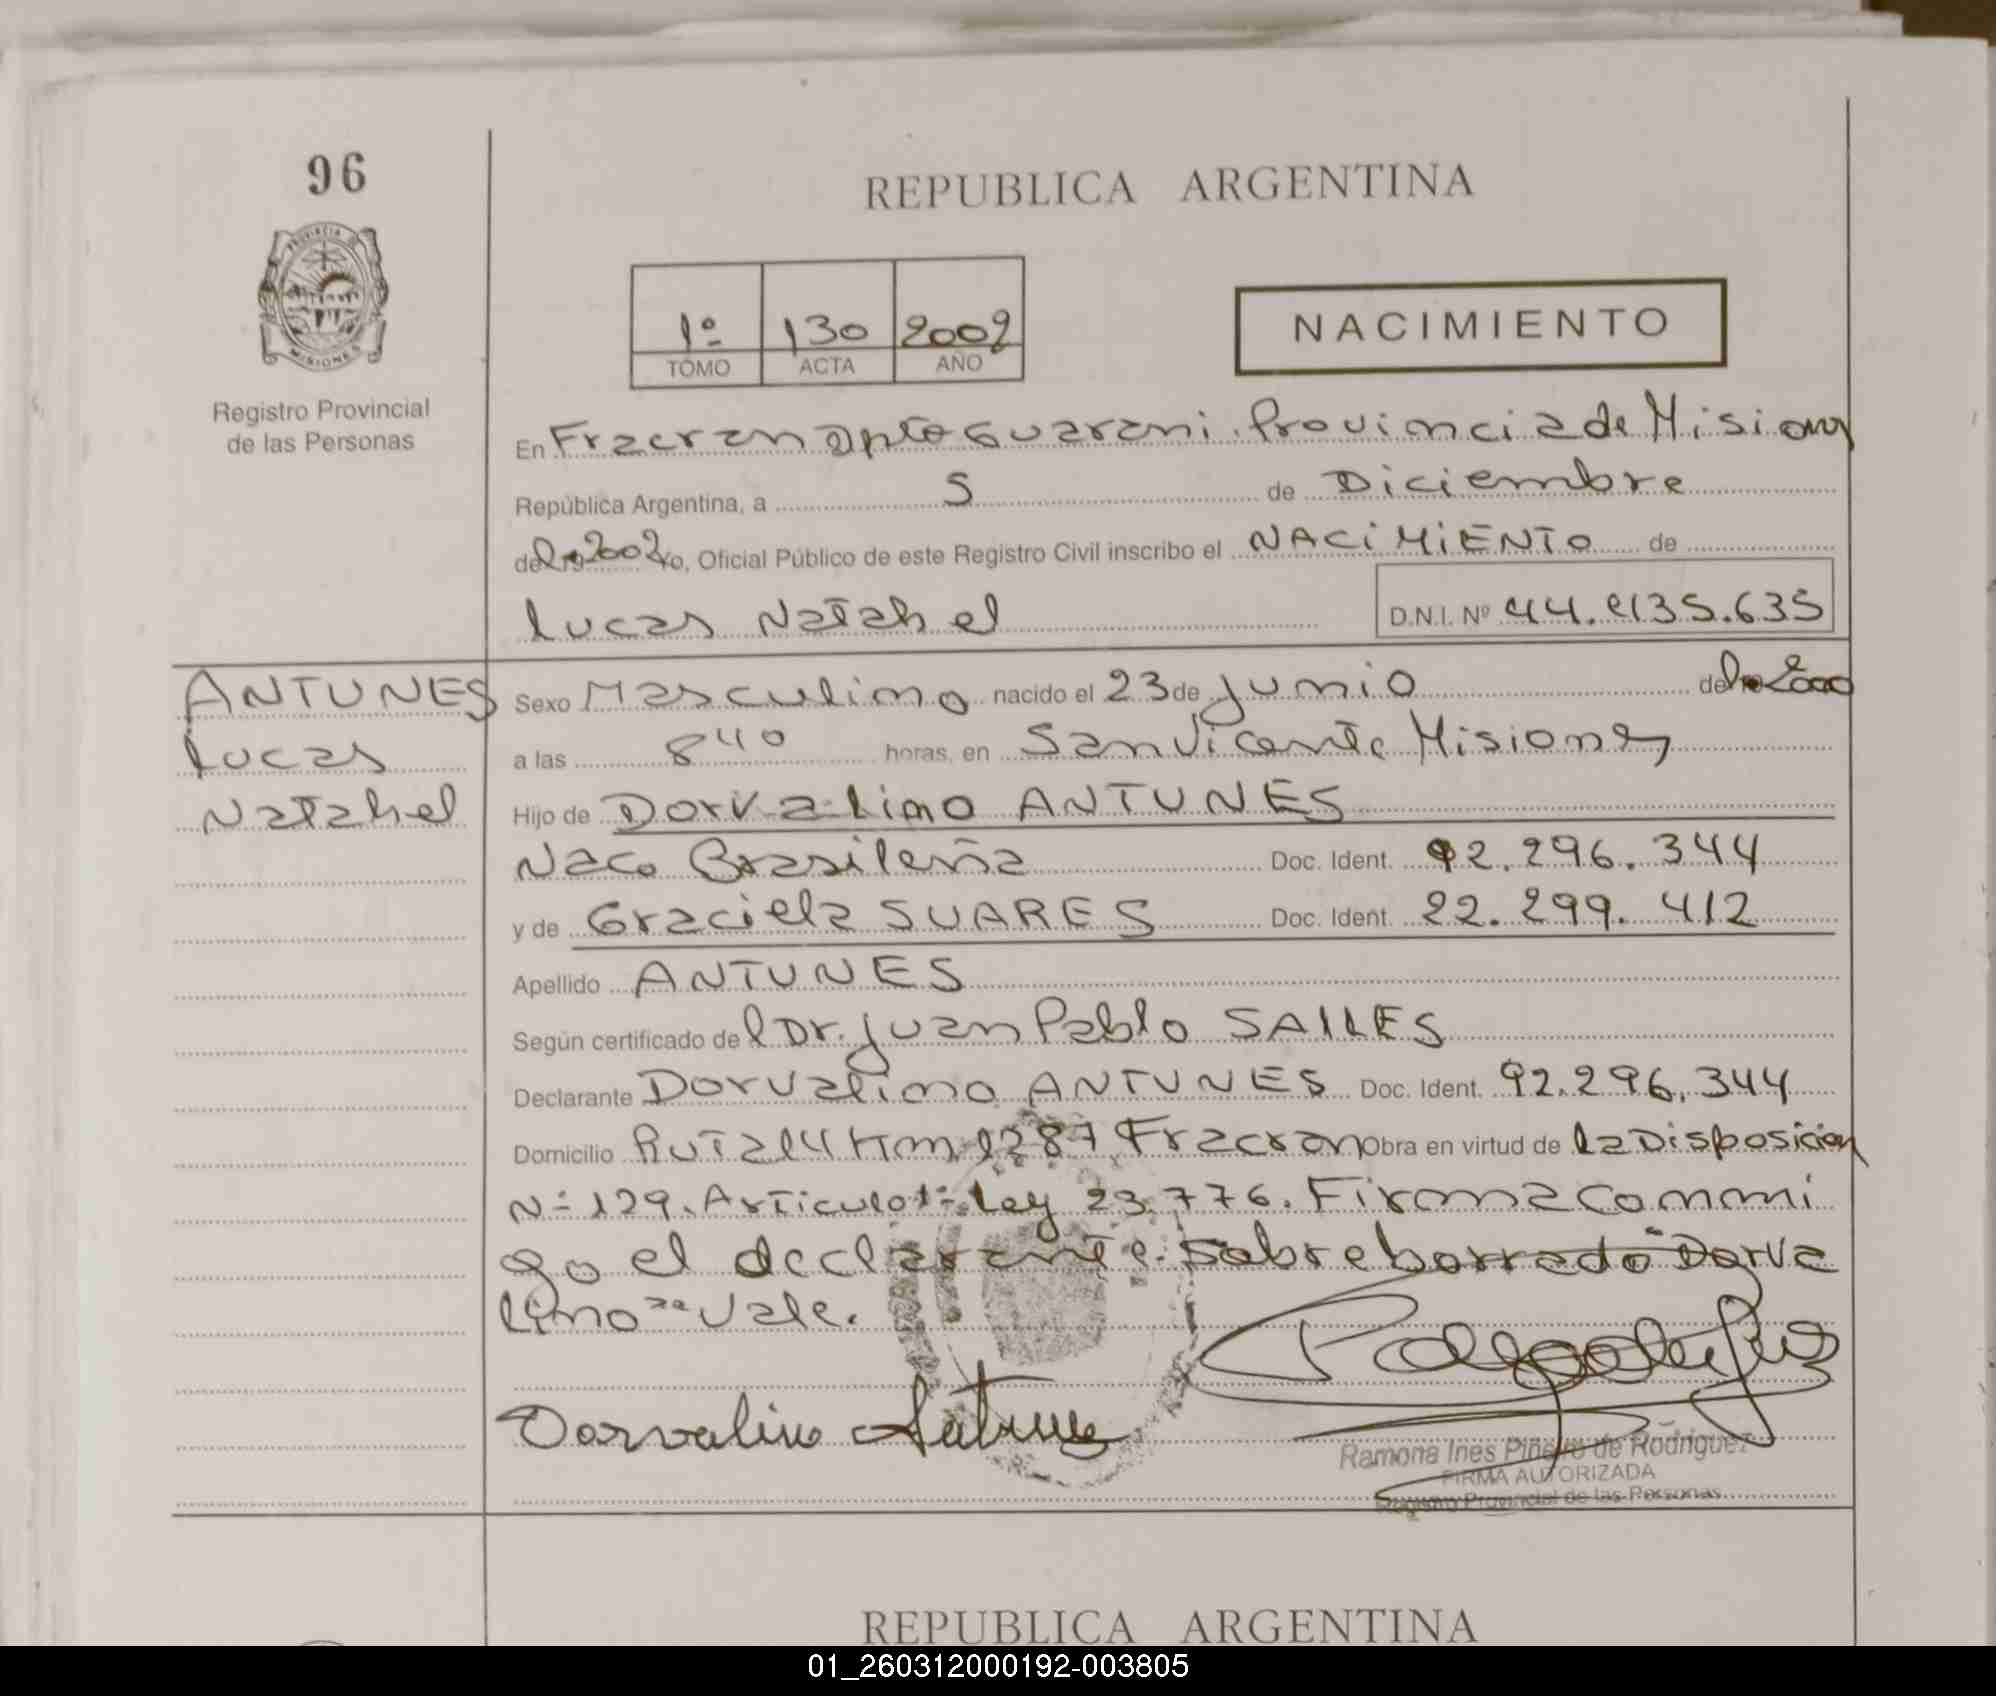 96
REPUBLICA ARGENTINA
PROVINCIA DE
MISIONES
Registro Provincial
de las Personas
1º 130 2002
TOMO ACTA AÑO
NACIMIENTO
En Fracran Dpto Guarani Provincia de Misiones
República Argentina, a 5 de Diciembre
del 2002 yo, Oficial Público de este Registro Civil inscribo el NACIMIENTO de
Lucas Natahel D.N.I. Nº 44.435.635
ANTUNES
Lucas
Natahel
Sexo Masculino nacido el 23 de junio del 2000
a las 8 40 horas, en San Vicente Misiones
Hijo de Dorvalino ANTUNES
Naco Brasileña Doc. Ident. 92.296.344
y de Graciela SUARES Doc. Ident. 22.299.412
Apellido ANTUNES
Según certificado del Dr. Juan Pablo SALLES
Declarante Dorvalino ANTUNES Doc. Ident. 92.296.344
Domicilio Ruta 14 Km 1287 Fracran Obra en virtud de la Disposicion
Nº 129. Articulo 1º Ley 23.776. Firma conmi
go el declarante. Sobreborrado "Dorva
lino" Vale.
Dorvalino Antunes
Ramona Ines Piñeiro de Rodriguez
FIRMA AUTORIZADA
Registro Provincial de las Personas
REPUBLICA ARGENTINA
01_260312000192-003805